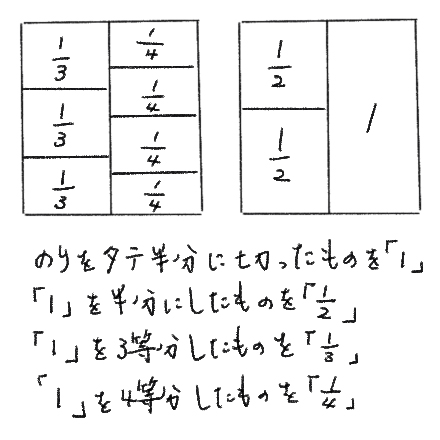 1/3
1/3
1/3
1/4
1/4
1/4
1/4
1/2
1/2
1
のりをタテ半分に切ったものを「1」
「1」を半分にしたものを「1/2」
「1」を3等分したものを「1/3」
「1」を4等分したものを「1/4」